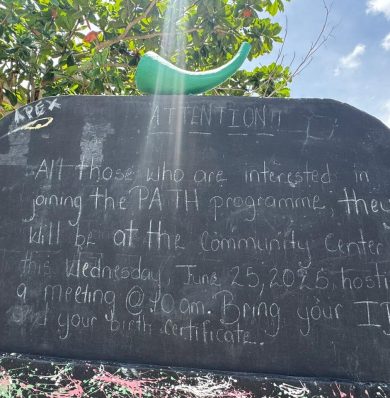 APEX
ATTENTION!!
All those who are interested in
joining the PATH programme, they
will be at the Community Center
this Wednesday, June 25, 2025 hosti
a meeting @ 10 am. Bring your I
and your birth certificate.